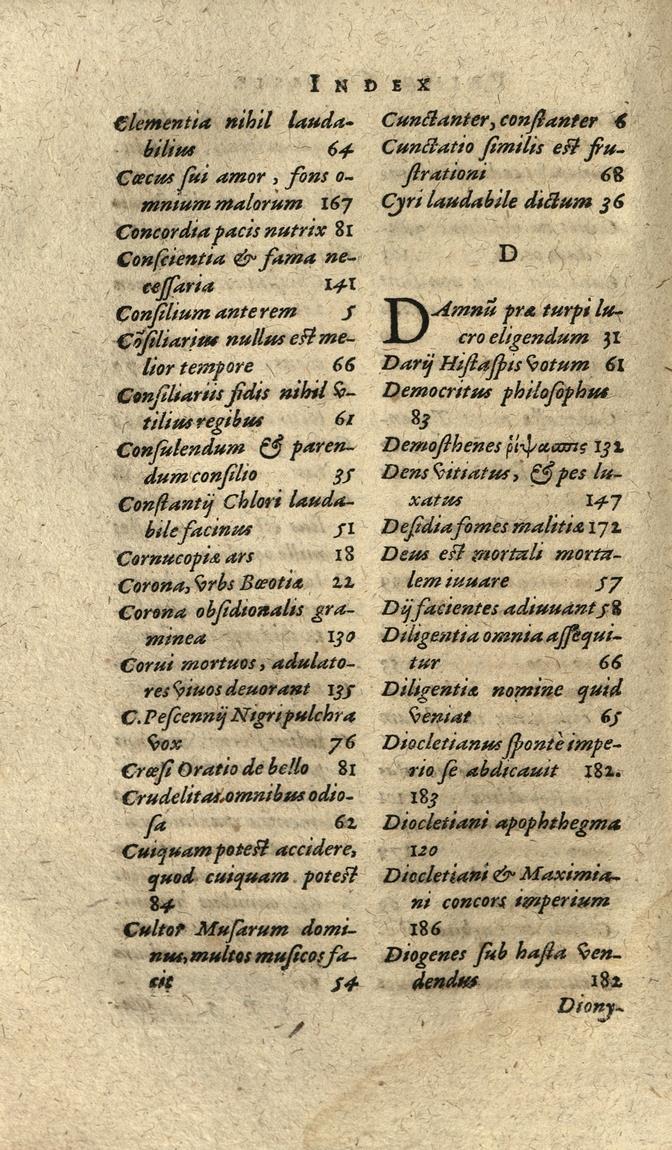 INDEX
Clementia nihil lauda-
bilius 64
Cæcus sui amor, fons o-
mnium malorum 167
Concordia pacis nutrix 81
Conscientia & fama ne-
cessaria 141
Consilium ante rem 5
Cõsiliarius nullus est me-
lior tempore 66
Consiliariis fidis nihil v-
tilius regibus 61
Consulendum & paren-
dum consilio 35
Constantij Chlori lauda-
bile facinus 51
Cornucopiæ ars 18
Corona, vrbs Bœotiæ 22
Corona obsidionalis gra-
minea 130
Corui mortuos, adulato-
res viuos deuorant 135
C. Pescennij Nigri pulchra
vox 76
Crœsi Oratio de bello 81
Crudelitas omnibus odio-
sa 62
Cuiquam potest accidere,
quod cuiquam potest
84
Cultor Musarum domi-
nus, multos musicos fa-
cit 54
Cunctanter, constanter 6
Cunctatio similis est fru-
strationi 68
Cyri laudabile dictum 36
D
DAmnũ præ turpi lu-
cro eligendum 31
Darij Histaspis votum 61
Democritus philosophus
83
Demosthenes ῥίψασπις 132
Dens vitiatus, & pes lu-
xatus 147
Desidia fomes malitiæ 172
Deus est mortali morta-
lem iuuare 57
Dij facientes adiuuant 58
Diligentia omnia assequi-
tur 66
Diligentiæ nomine quid
veniat 65
Diocletianus spontè impe-
rio se abdicauit 182.
183
Diocletiani apophthegma
120
Diocletiani & Maximia-
ni concors imperium
186
Diogenes sub hasta ven-
dendus 182
Diony-